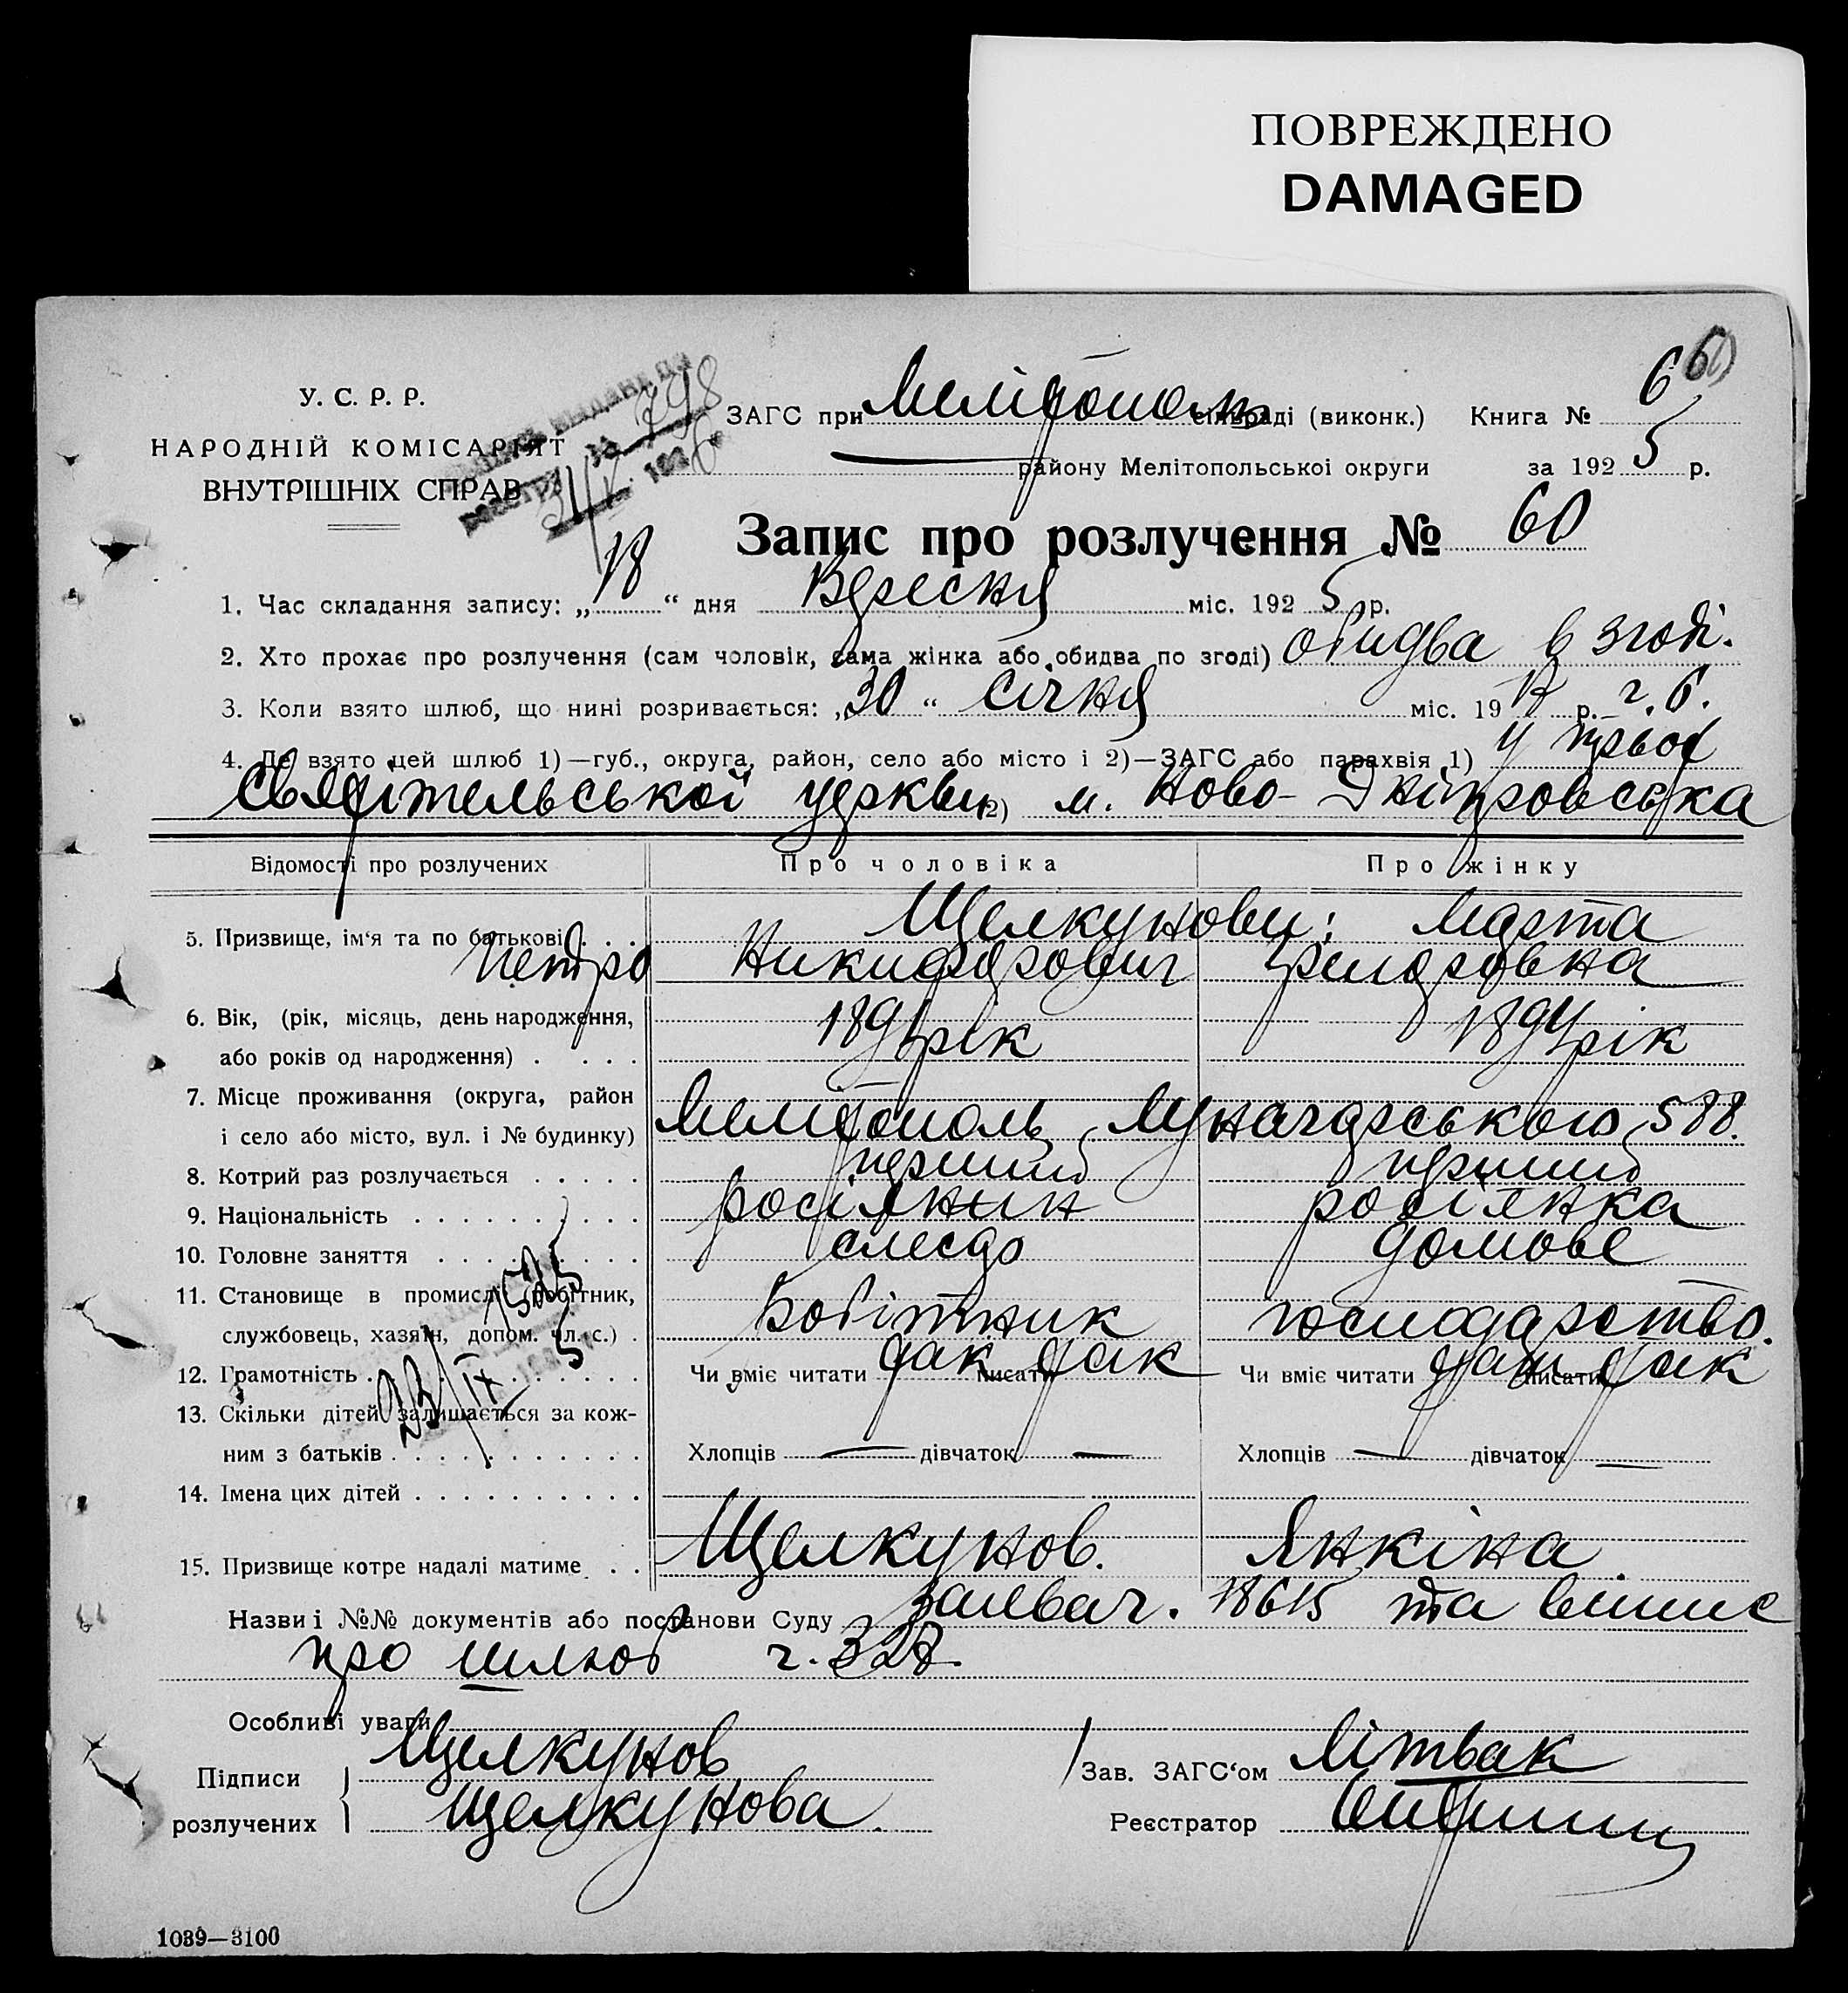 ПОВРЕЖДЕНО
DAMAGED
60
У. С. Р. Р.
НАРОДНІЙ КОМІСАРІЯТ
ВНУТРІШНІХ СПРАВ
798
ЗАГС при Мелітополь сільраді (виконк.) Книга № 6
району Мелітопольської округи за 1925 р.
Запис про розлучення № 60
1. Час складання запису: „18“ дня Вересня міс. 1925 р.
2. Хто прохає про розлучення (сам чоловік, сама жінка або обидва по згоді) обидва в згоді.
3. Коли взято шлюб, що нині розривається: „30“ січня міс. 19 р.
4. Де взято цей шлюб 1)—губ., округа, район, село або місто і 2)—ЗАГС або парахвія 1) у трьох
Святітельської церкви 2) м. Ново-Дніпровська
Відомості про розлучених Про чоловіка Про жінку
5. Призвище, ім‘я та по батькові Щелкунови: Марта
Петро Никифорович
6. Вік, (рік, місяць, день народження,
або років од народження) 1891 рік 1894 рік
7. Місце проживання (округа, район
і село або місто, вул. і № будинку) Мелітополь, Луначарського, 588.
8. Котрий раз розлучається перший перший
9. Національність росіянин росіянка
10. Головне заняття слесар домове
11. Становище в промислі (робітник,
службовець, хазяїн, допом. чл. с.) Робітник господарство.
12. Грамотність Чи вміє читати так писати так Чи вміє читати так писати так
13. Скільки дітей залишається за кож-
ним з батьків Хлопців — дівчаток — Хлопців — дівчаток —
14. Імена цих дітей
15. Призвище котре надалі матиме Щелкунов. Янкіна
Назви і №№ документів або постанови Суду та випис
про шлюб ч. 328.
Особливі уваги
Підписи розлучених Щелкунов
Щелкунова.
Зав. ЗАГС‘ом Літвак
Реєстратор
23/IX
1039—3100